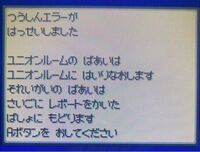 つうしんエラーが
はっせいしました
ユニオンルームの ばあいは
ユニオンルームに はいりなおします
それいがいの ばあいは
さいごに レポートをかいた
ばしょに もどります
Aボタンを おしてください